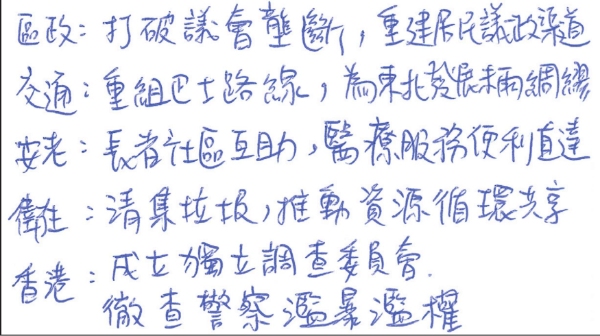 區政：打破議會壟斷，重建居民議政渠道
交通：重組巴士路線，為東北發展未雨綢繆
安老：長者社區互助，醫療服務便利直達
衛生：清集垃圾，推動資源循環共享
香港：成立獨立調查委員會．
徹查警察濫暴濫權